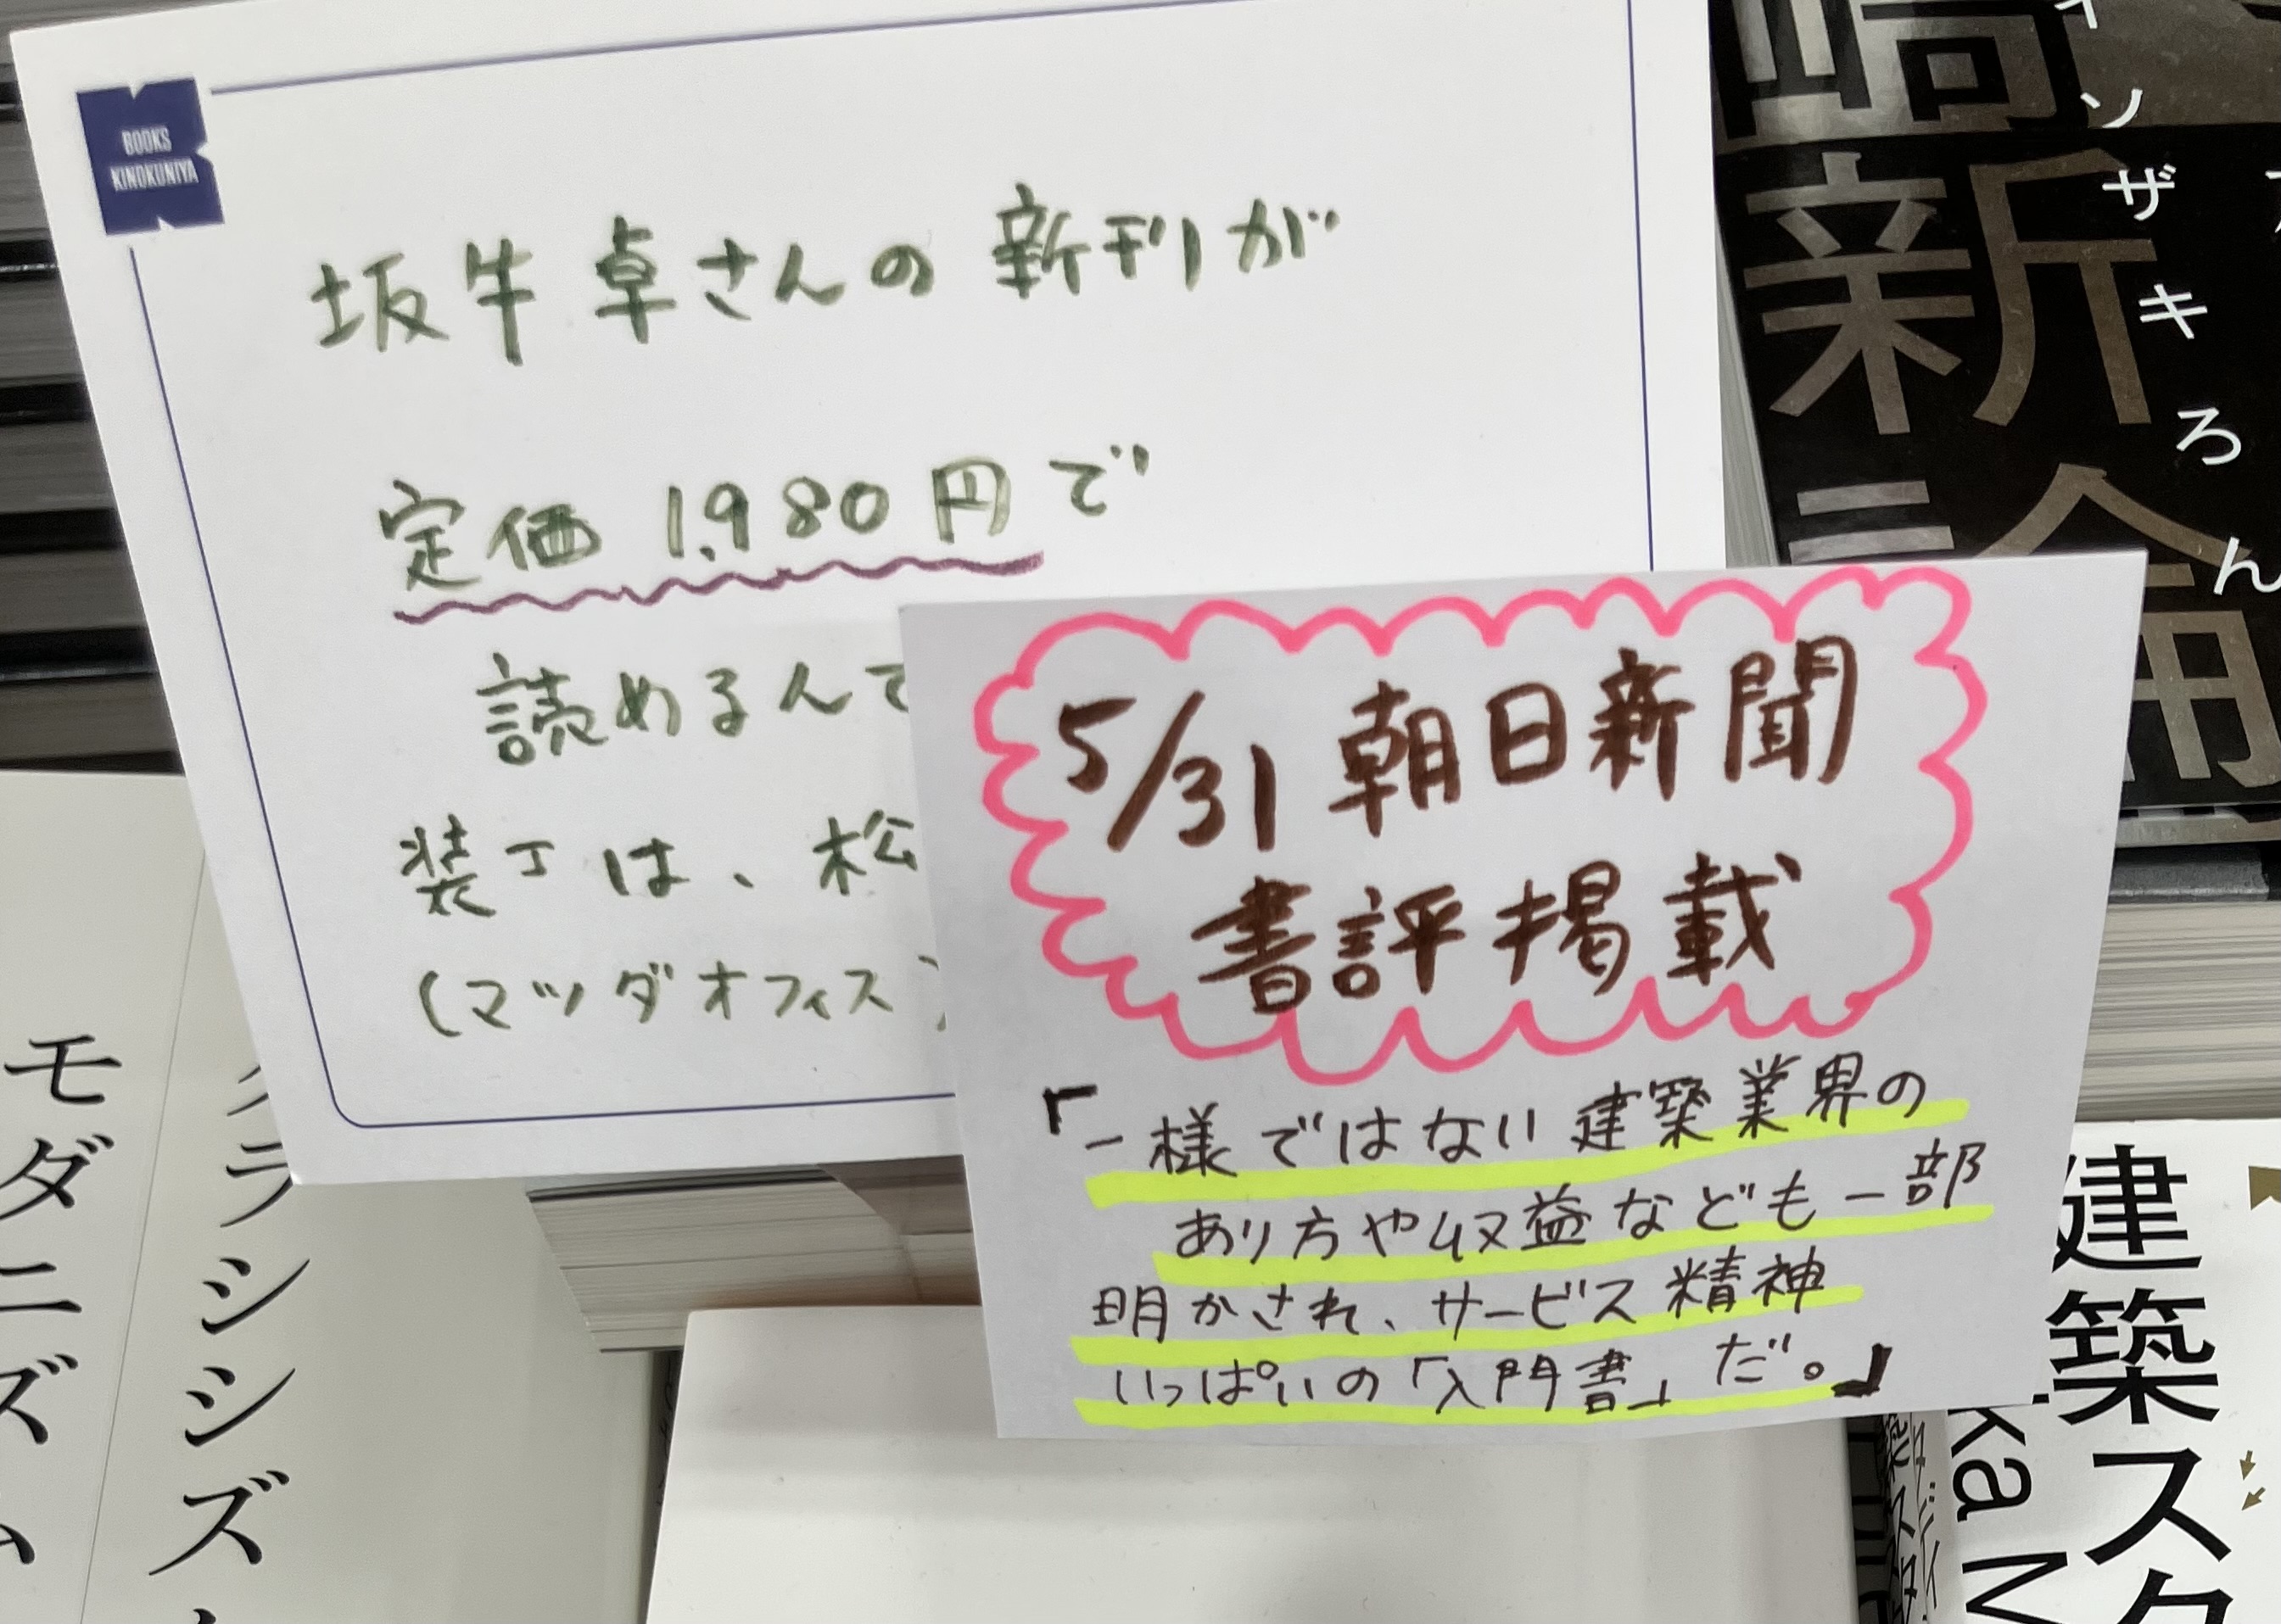 BOOKS
KINOKUNIYA
坂牛卓さんの新刊が
定価1,980円で
読めるんで
装丁は、松
(マツダオフィス)
5/31 朝日新聞
書評掲載
『一様ではない建築業界の
あり方や収益なども一部
明かされ、サービス精神
いっぱいの「入門書」だ。』
崎新論
イソザキろん
モダニズム
クラシシズム
建築スタ
ka M